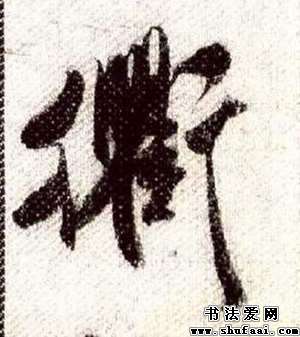 衢
书法爱网
www.shufaai.com